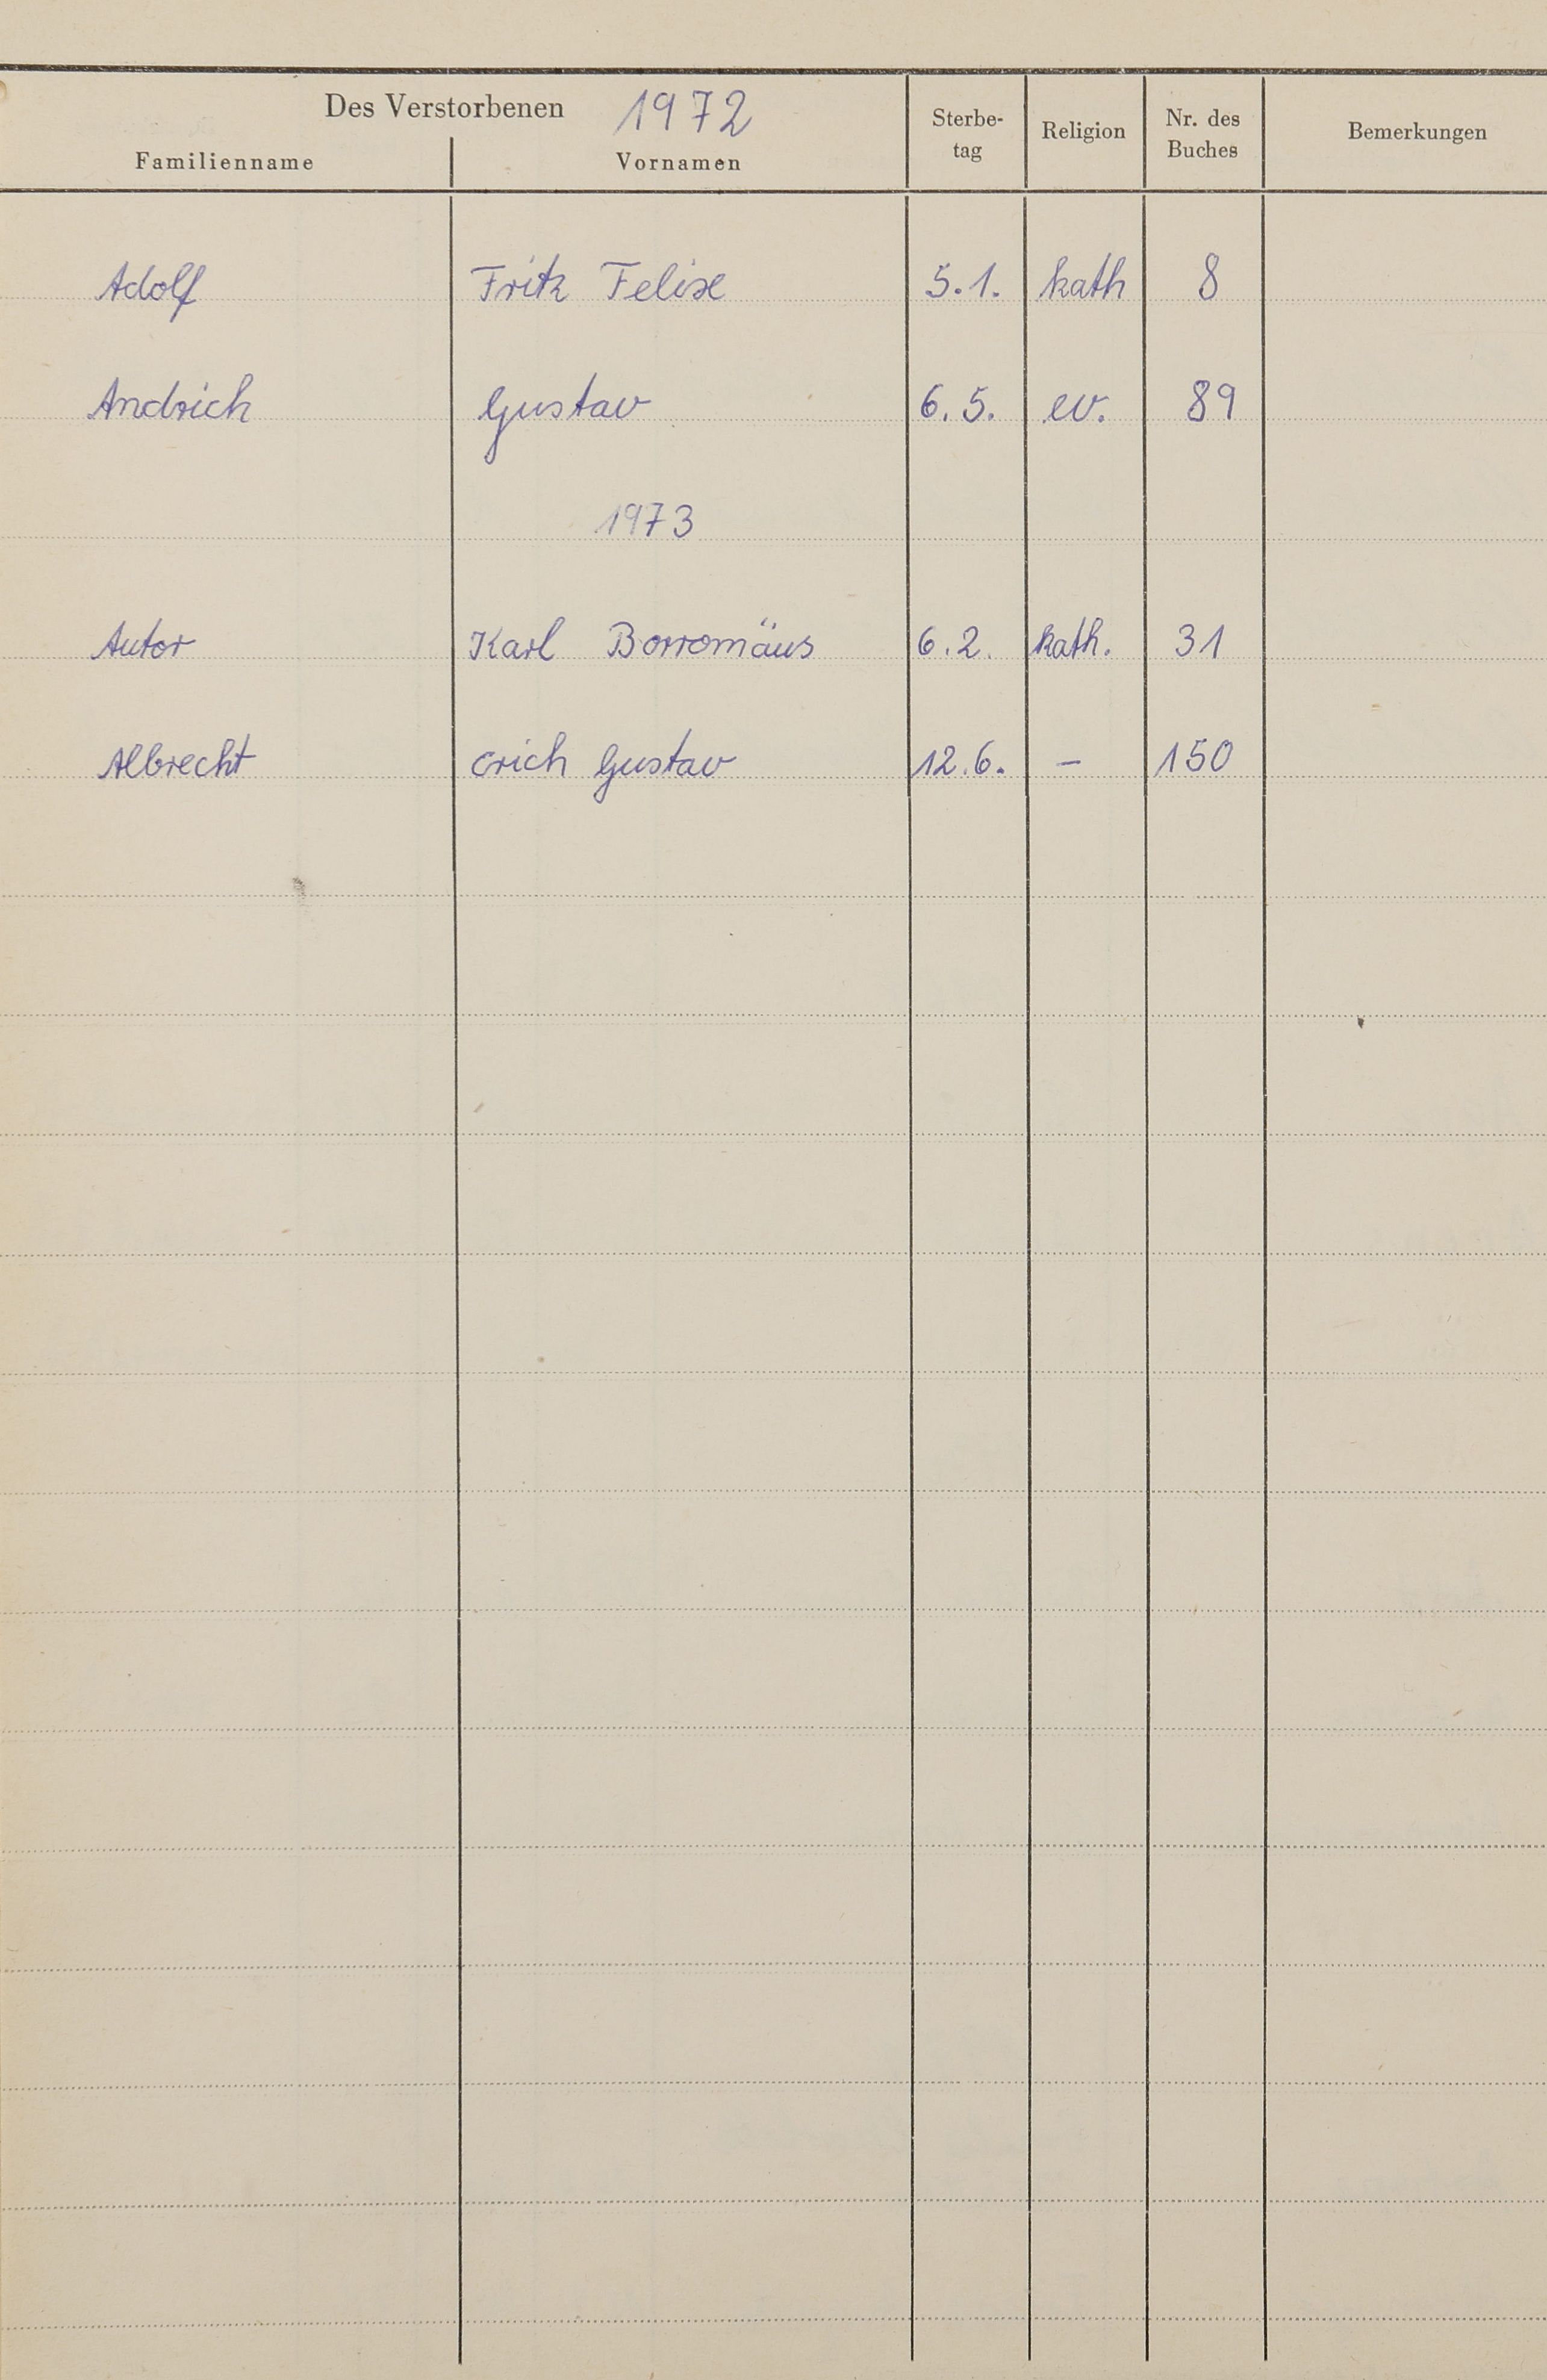 Des Verstorbenen 1972
Familienname Vornamen Sterbe-tag Religion Nr. des Buches Bemerkungen
Adolf Fritz Felix 5.1. kath 8
Andrich Gustav 6.5. ev. 89
1973
Autor Karl Borromäus 6.2. kath. 31
Albrecht Erich Gustav 12.6. – 150